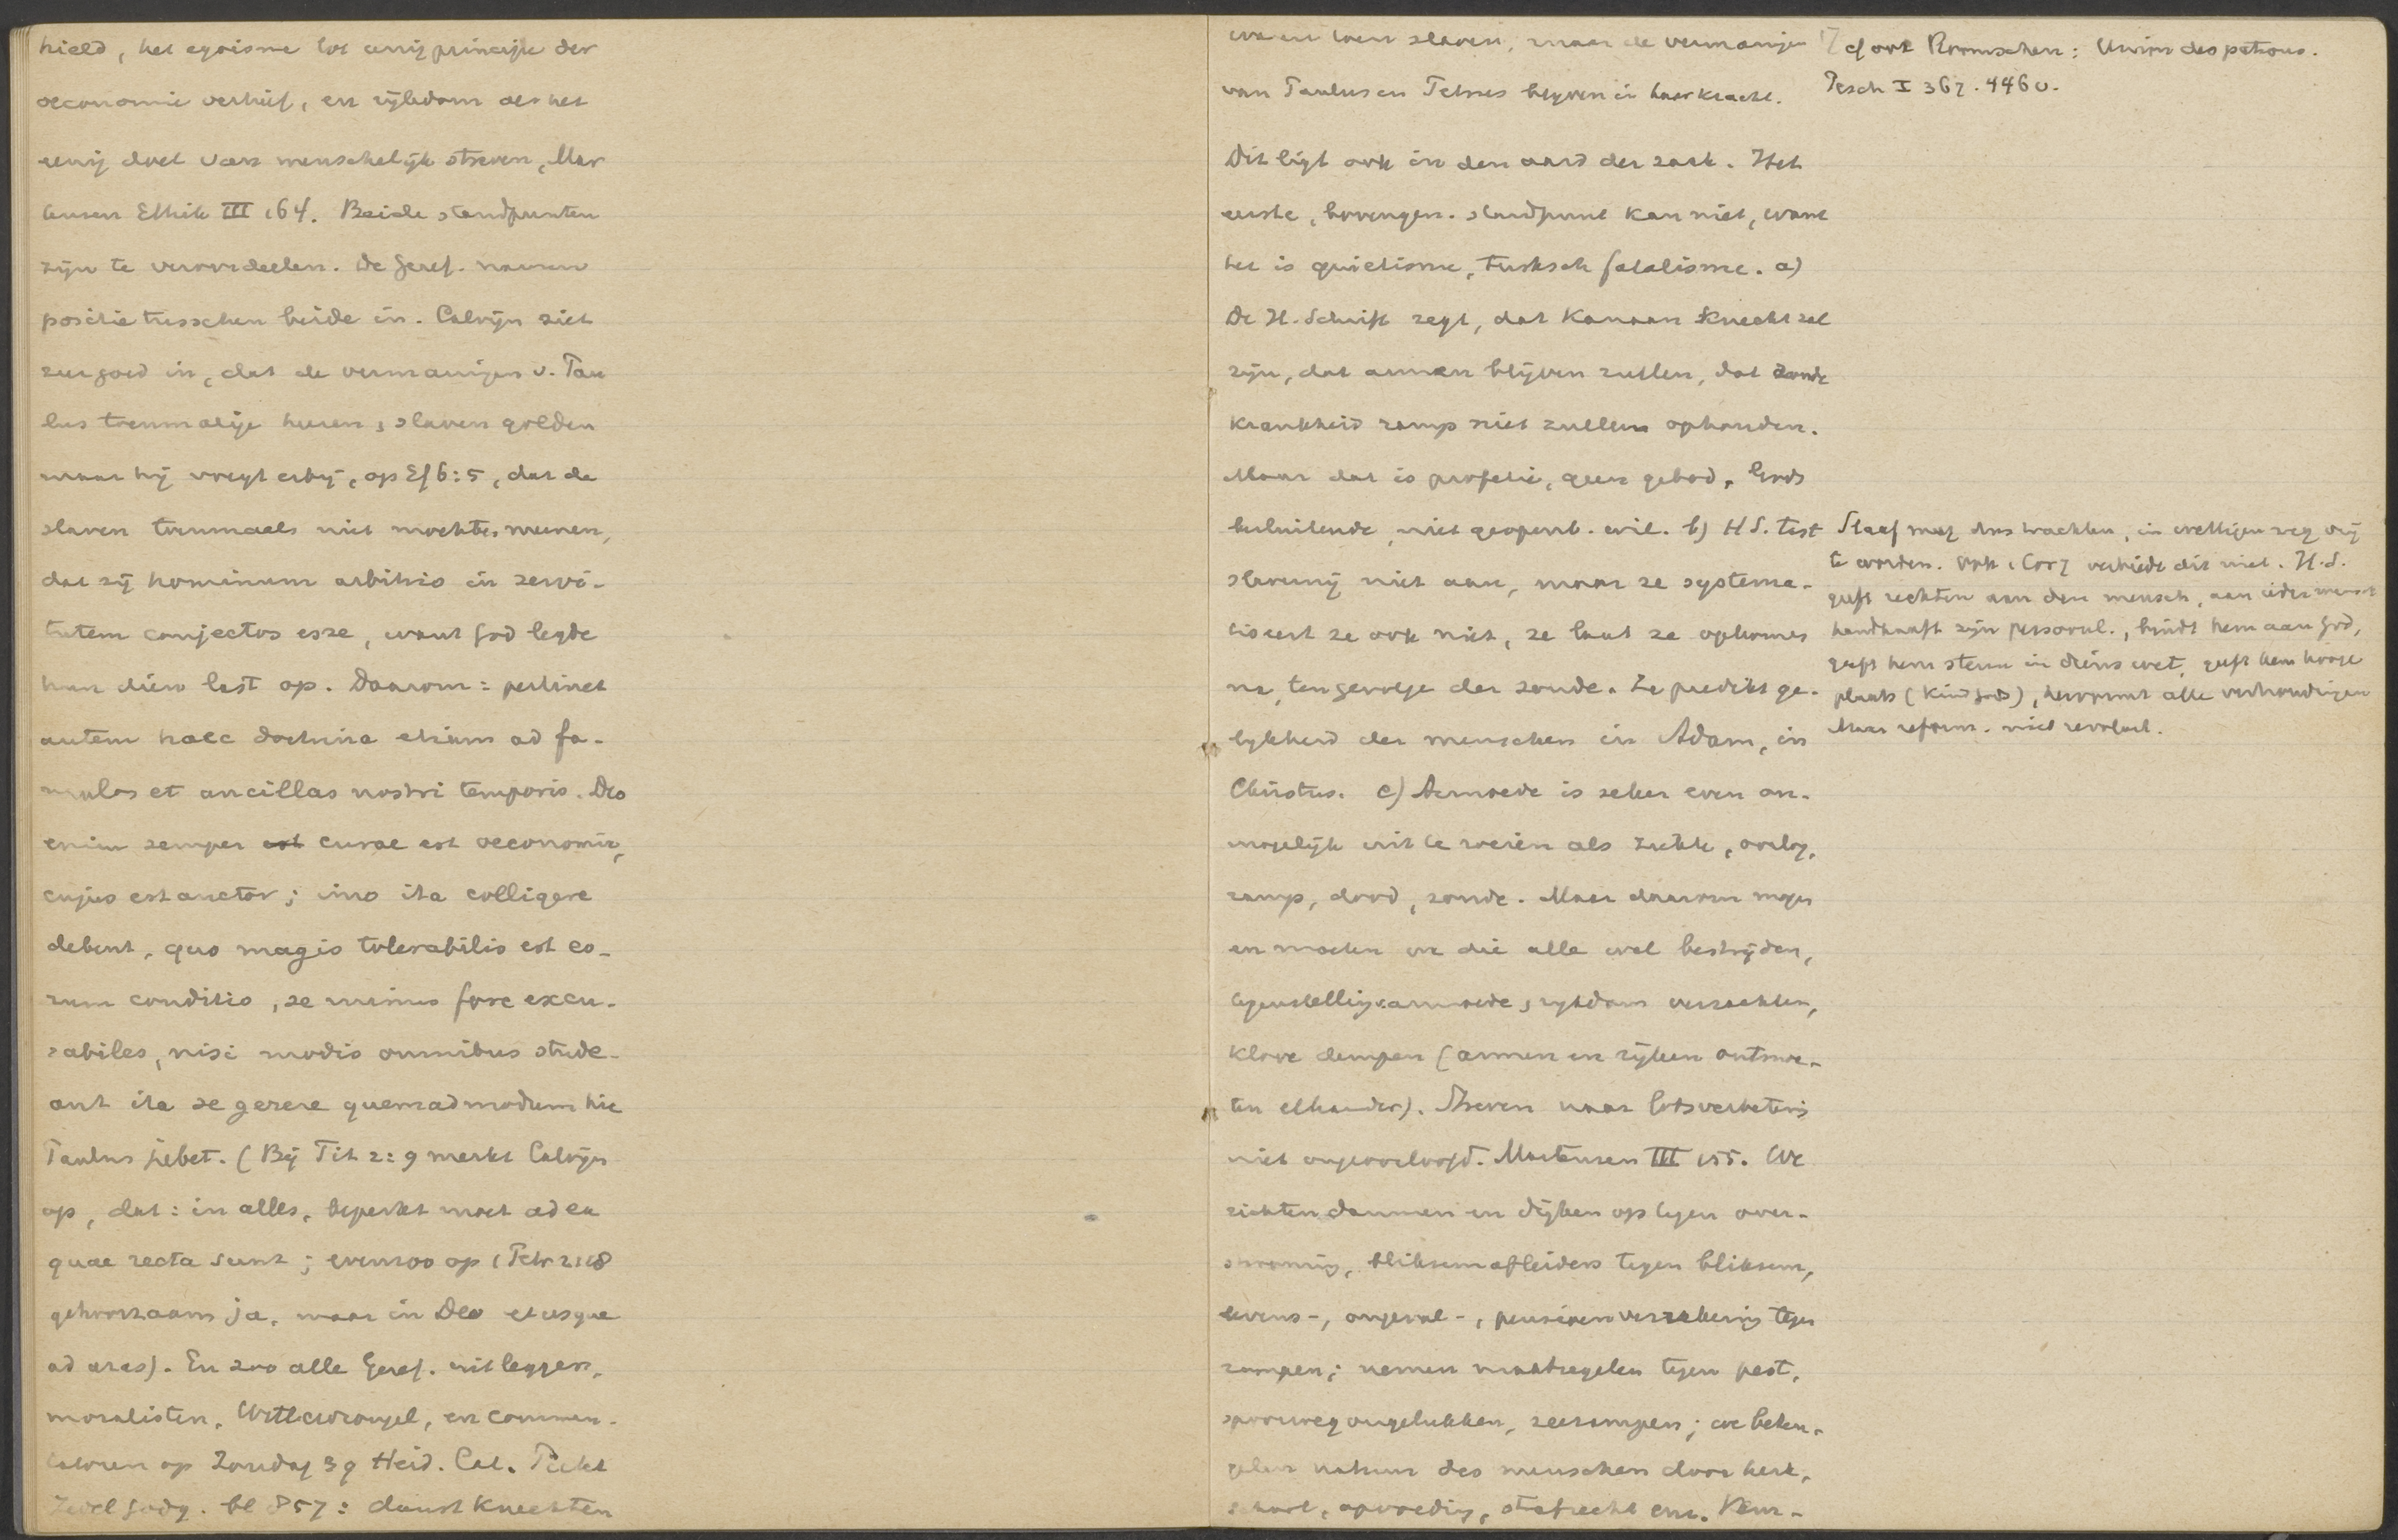 hield, het egoisme tot eenig principe der
oeconomie verhief, en rijkdom als het
eenig doel van menschelijk streven, Mar
tensen Ethik III 164. Beide standpunten
zijn te veroordeelen. De Geref. namen
positie tusschen beide in. Calvijn ziet
zeer goed in, dat de vermaningen v. Pau
lus toenmalige heeren, slaven golden
maar hij voegt erbij, op Ef 6:5, dat de
slaven toenmaals niet mochten meenen,
dat zij hominum arbitrio in servi-
tutem conjectos esse, want God legde
hun dien last op. Daarom: pertinet
autem haec doctrina etiam ad fa-
mulos et ancillas nostri temporis. Deo
enim semper est curae est oeconomia,
cujus est auctor; imo ita colligere
debent, quo magis tolerabilis est eo-
rum conditio, se minus fore excu-
sabiles, nisi modis omnibus stude-
ant ita se gerere quemadmodum hic
Paulus jubet. (Bij Tit 2:9 merkt Calvijn
op, dat: in alles, beperkt moet ad ea
quae recta sunt; evenzoo op 1 Petr 2:18
gehoorzaam ja, maar in Deo et usque
ad aras). En zoo alle Geref. uitleggers,
moralisten, Wittewrongel, en commen-
tatoren op Zondag 39 Heid. Cat. Pictet
Godg. bl 857: dienstknechten
waren toen slaven, maar de vermaningen
van Paulus en Petrus blijven in haar kracht.
Dit ligt ook in den aard der zaak. Het
eerste, bovengen. standpunt kan niet, want
het is quietisme, Turksch fatalisme. a)
De H. Schrift zegt, dat Kanaan knecht zal
zijn, dat armen blijven zullen, dat zonde
krankheid ramp niet zullen ophouden.
Maar dat is profetie, geen gebod, Gods
besluitende, niet geopenb. wil. b) H S. tast
slavernij niet aan, maar ze systema-
tiseert ze ook niet, ze laat ze opkomen
na, tengevolge der zonde. Ze predikt ge-
lijkheid der menschen in Adam, in
Christus. c) Armoede is zeker even on-
mogelijk uit te roeien als ziekte, oorlog,
ramp, dood, zonde. Maar daarom mogen
en moeten we die alle wel bestrijden,
tegenstelling v. armoede, rijkdom verzachten,
klove dempen (armen en rijken ontmoe-
ten elkander). Streven naar lotsverbetering
niet ongeoorloofd. Martensen III 155. We
richten dammen en dijken op tegen over-
strooming, bliksemafleiders tegen bliksem,
levens-, ongeval-, pensioenverzekering tegen
rampen; nemen maatregelen tegen pest,
spoorwegongelukken, zeerampen; we beteu-
gelen natuur des menschen door kerk,
school, opvoeding, strafrecht enz.
cf ook Roomschen: Union des patrons.
Pesch I 367. 446 v.
Slaaf mag dus trachten, in wettigen weg vrij
te worden. Ook 1 Cor 7 verbiedt dit niet. H.S.
geeft rechten aan den mensch, aan ieder mensch
handhaaft zijn persoonl., bindt hem aan God,
geeft hem steun in diens wet, geeft hem hooge
plaats (Kind Gods), hervormt alle verhoudingen
Maar reform. niet revolut.